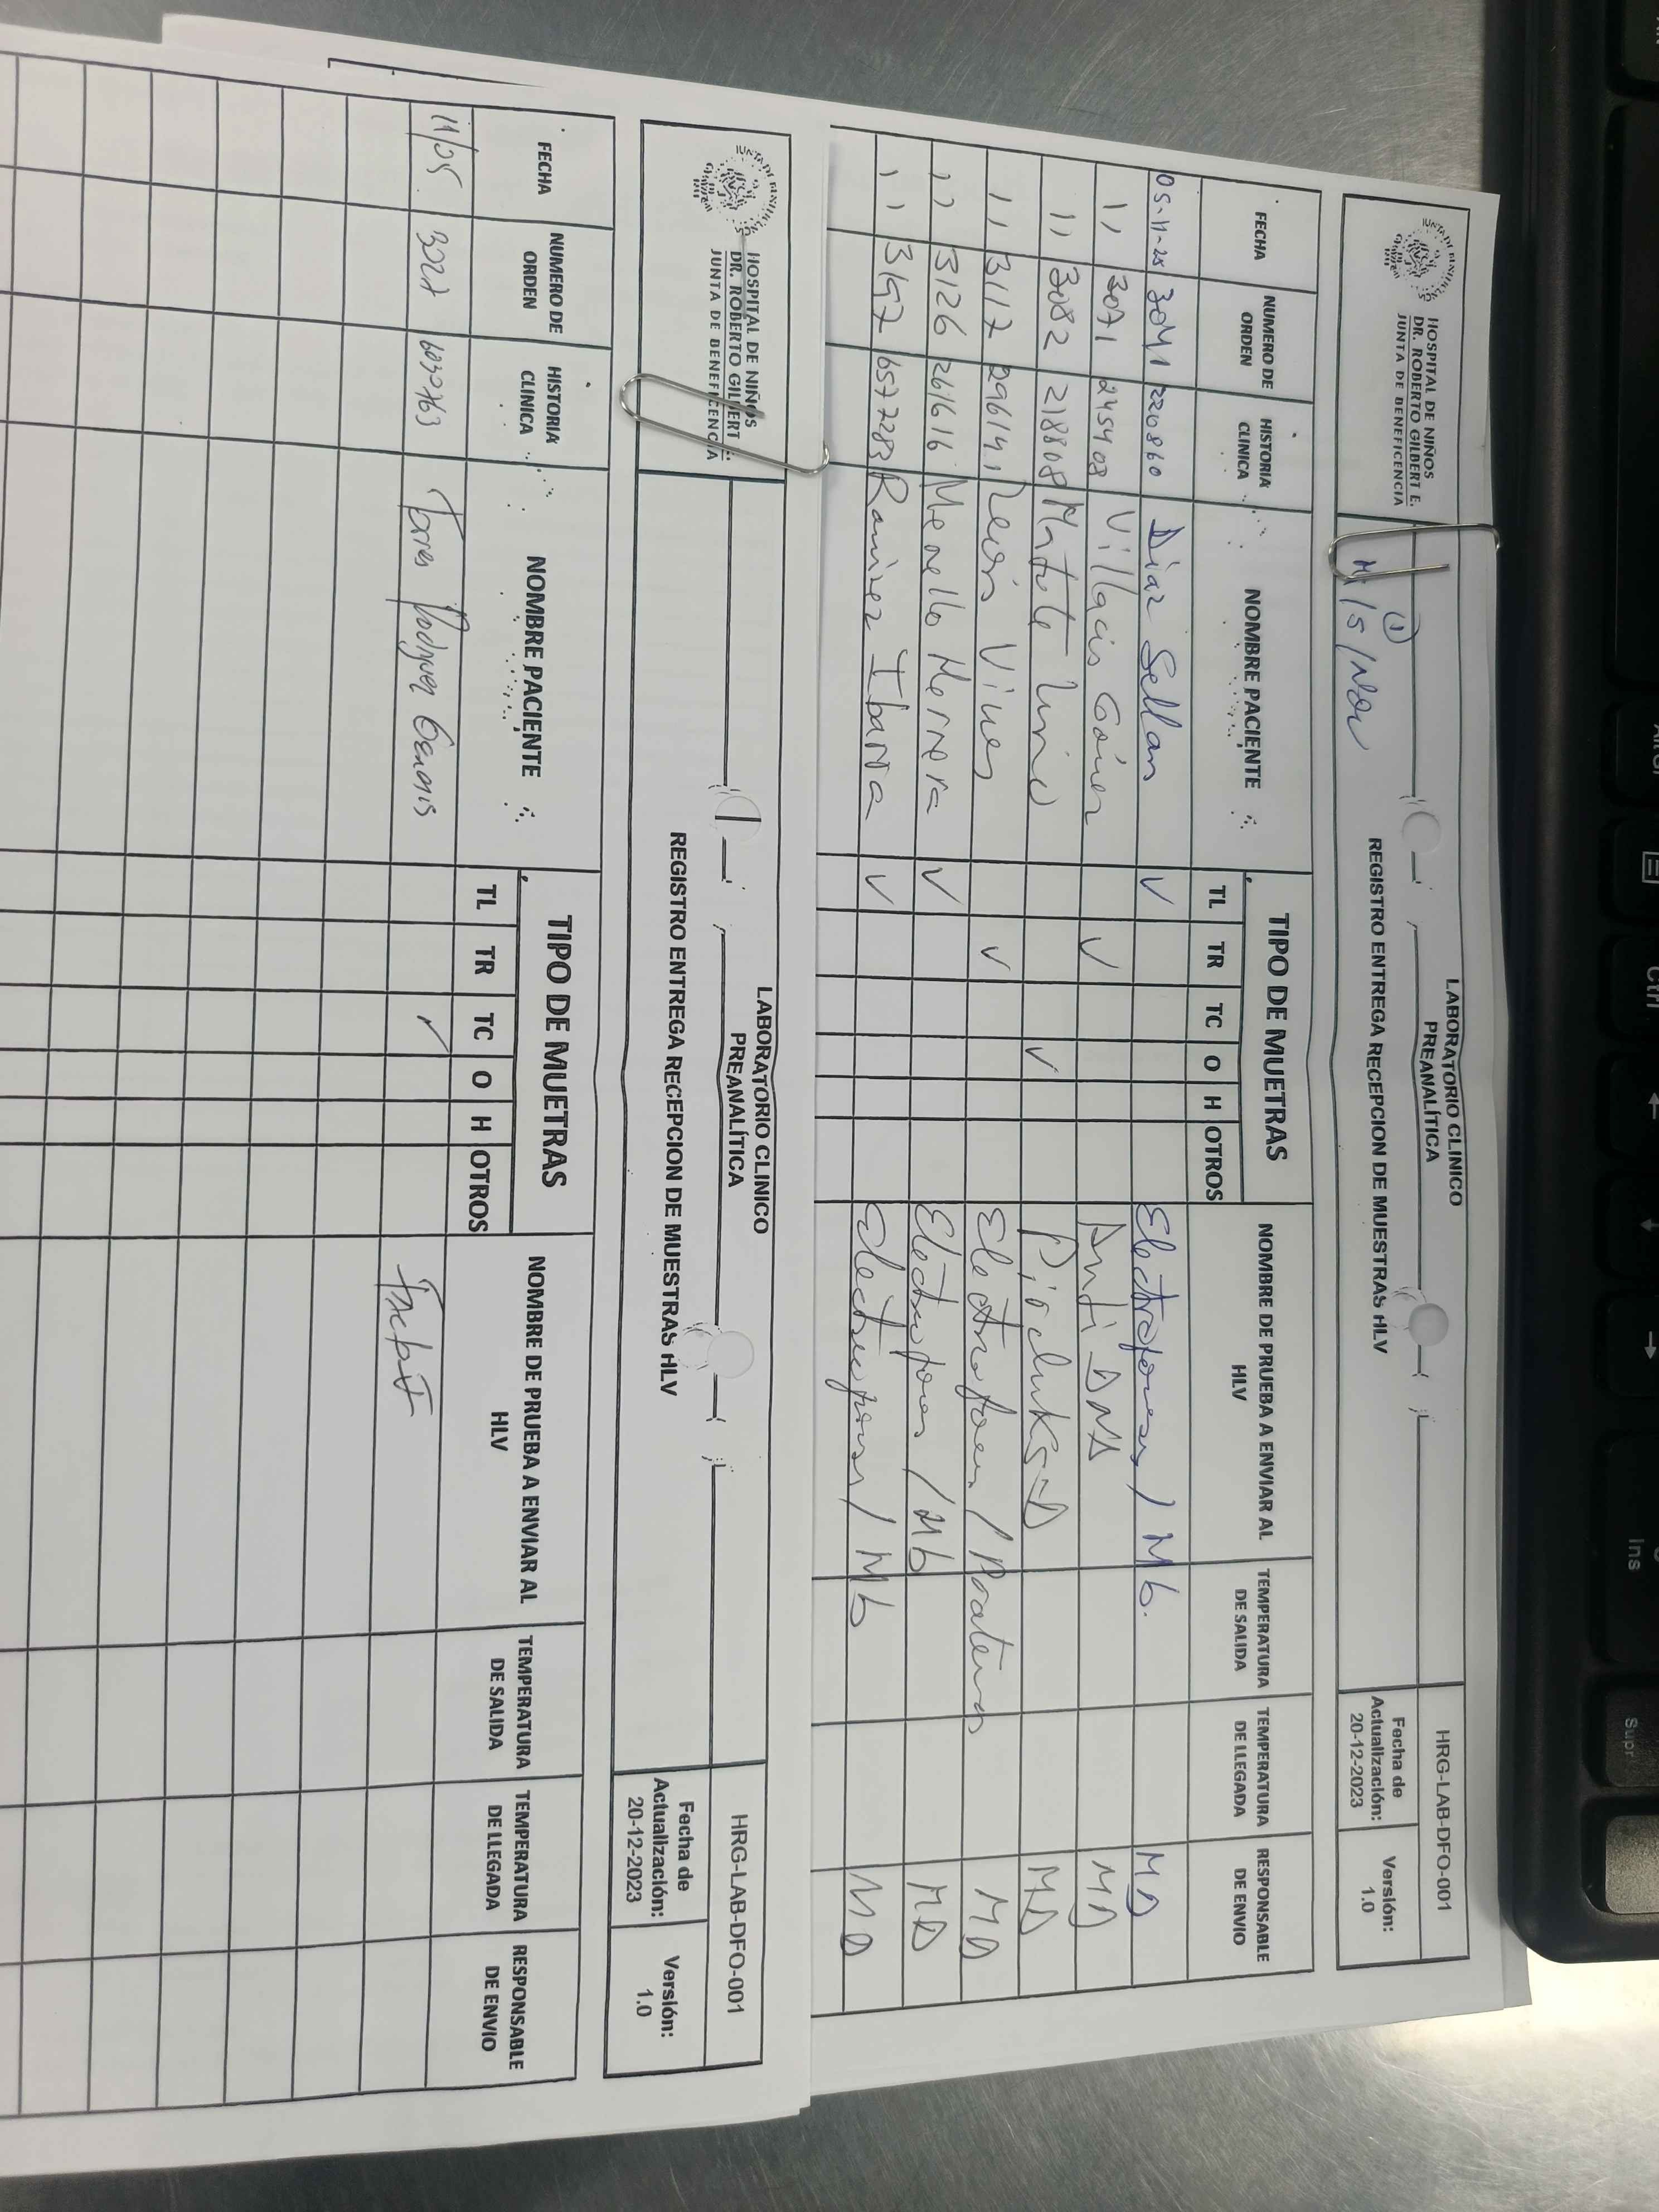 HOSPITAL DE NIÑOS
DR. ROBERTO GILBERT E.
JUNTA DE BENEFICENCIA
LABORATORIO CLINICO
PREANALÍTICA
HRG-LAB-DFO-001
(1)
M/5/Nov
REGISTRO ENTREGA RECEPCION DE MUESTRAS HLV
Fecha de Actualización: 20-12-2023
Versión: 1.0
FECHA NUMERO DE ORDEN HISTORIA CLINICA NOMBRE PACIENTE TIPO DE MUETRAS NOMBRE DE PRUEBA A ENVIAR AL HLV TEMPERATURA DE SALIDA TEMPERATURA DE LLEGADA RESPONSABLE DE ENVIO
TL TR TC O H OTROS
05-11-25 3041 220860 Diaz Sellan ✓ / Mb. MD
11 3071 245403 Villacis Gómez ✓ Anti DNA MD
11 3082 218808 Matute ✓ MD
11 3117 296141 León Vines ✓ MD
11 3126 261616 Merello Herrera ✓ / Mb MD
11 3197 6577283 Ramirez Ibarra ✓ / Mb MD
HOSPITAL DE NIÑOS
DR. ROBERTO GILBERT E.
JUNTA DE BENEFICENCIA
LABORATORIO CLINICO
PREANALÍTICA
HRG-LAB-DFO-001
REGISTRO ENTREGA RECEPCION DE MUESTRAS HLV
Fecha de Actualización: 20-12-2023
Versión: 1.0
FECHA NUMERO DE ORDEN HISTORIA CLINICA NOMBRE PACIENTE TIPO DE MUETRAS NOMBRE DE PRUEBA A ENVIAR AL HLV TEMPERATURA DE SALIDA TEMPERATURA DE LLEGADA RESPONSABLE DE ENVIO
TL TR TC O H OTROS
11/05 3027 Torres Genesis ✓
Alt Gr
Ctrl
Ins
Supr